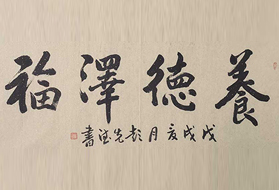 養德澤福
戊戌夏月彭先書